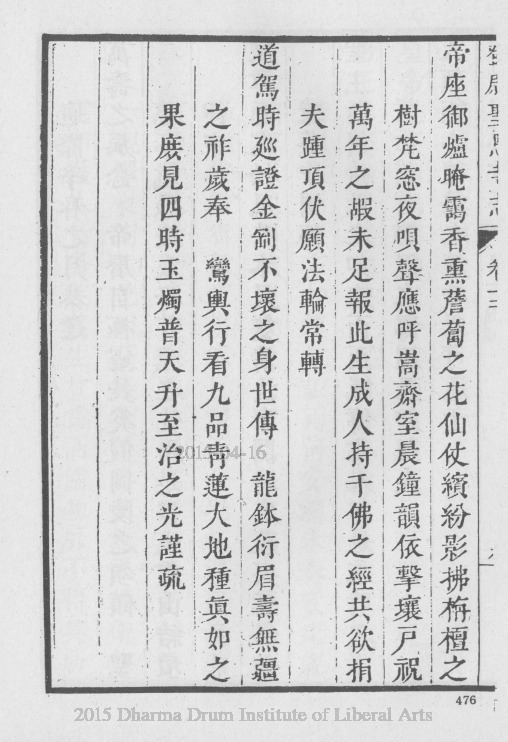 鄧尉聖恩寺志 卷十三
帝座御爐晻靄香熏薝蔔之花仙仗繽紛影拂栴檀之
樹梵窓夜唄聲應呼嵩齋室晨鐘韻依擊壤戶祝
萬年之嘏未足報此生成人持千佛之經共欲捐
夫踵頂伏願法輪常轉
道駕時廵證金剬不壞之身世傳 龍鉢衍眉壽無疆
之祚歲奉 鸞輿行看九品靑蓮大地種眞如之
果庶見四時玉燭普天升至治之光謹疏
2015-04-16
476
2015 Dharma Drum Institute of Liberal Arts